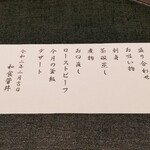 盛り合わせ
お吸い物
刺身
茶碗蒸し
煮物
お口直し
ローストビーフ
今月の釜飯
デザート
令和二年二月吉日